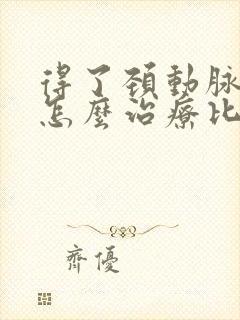 得了頚動脉
怎麼治療比
齊優